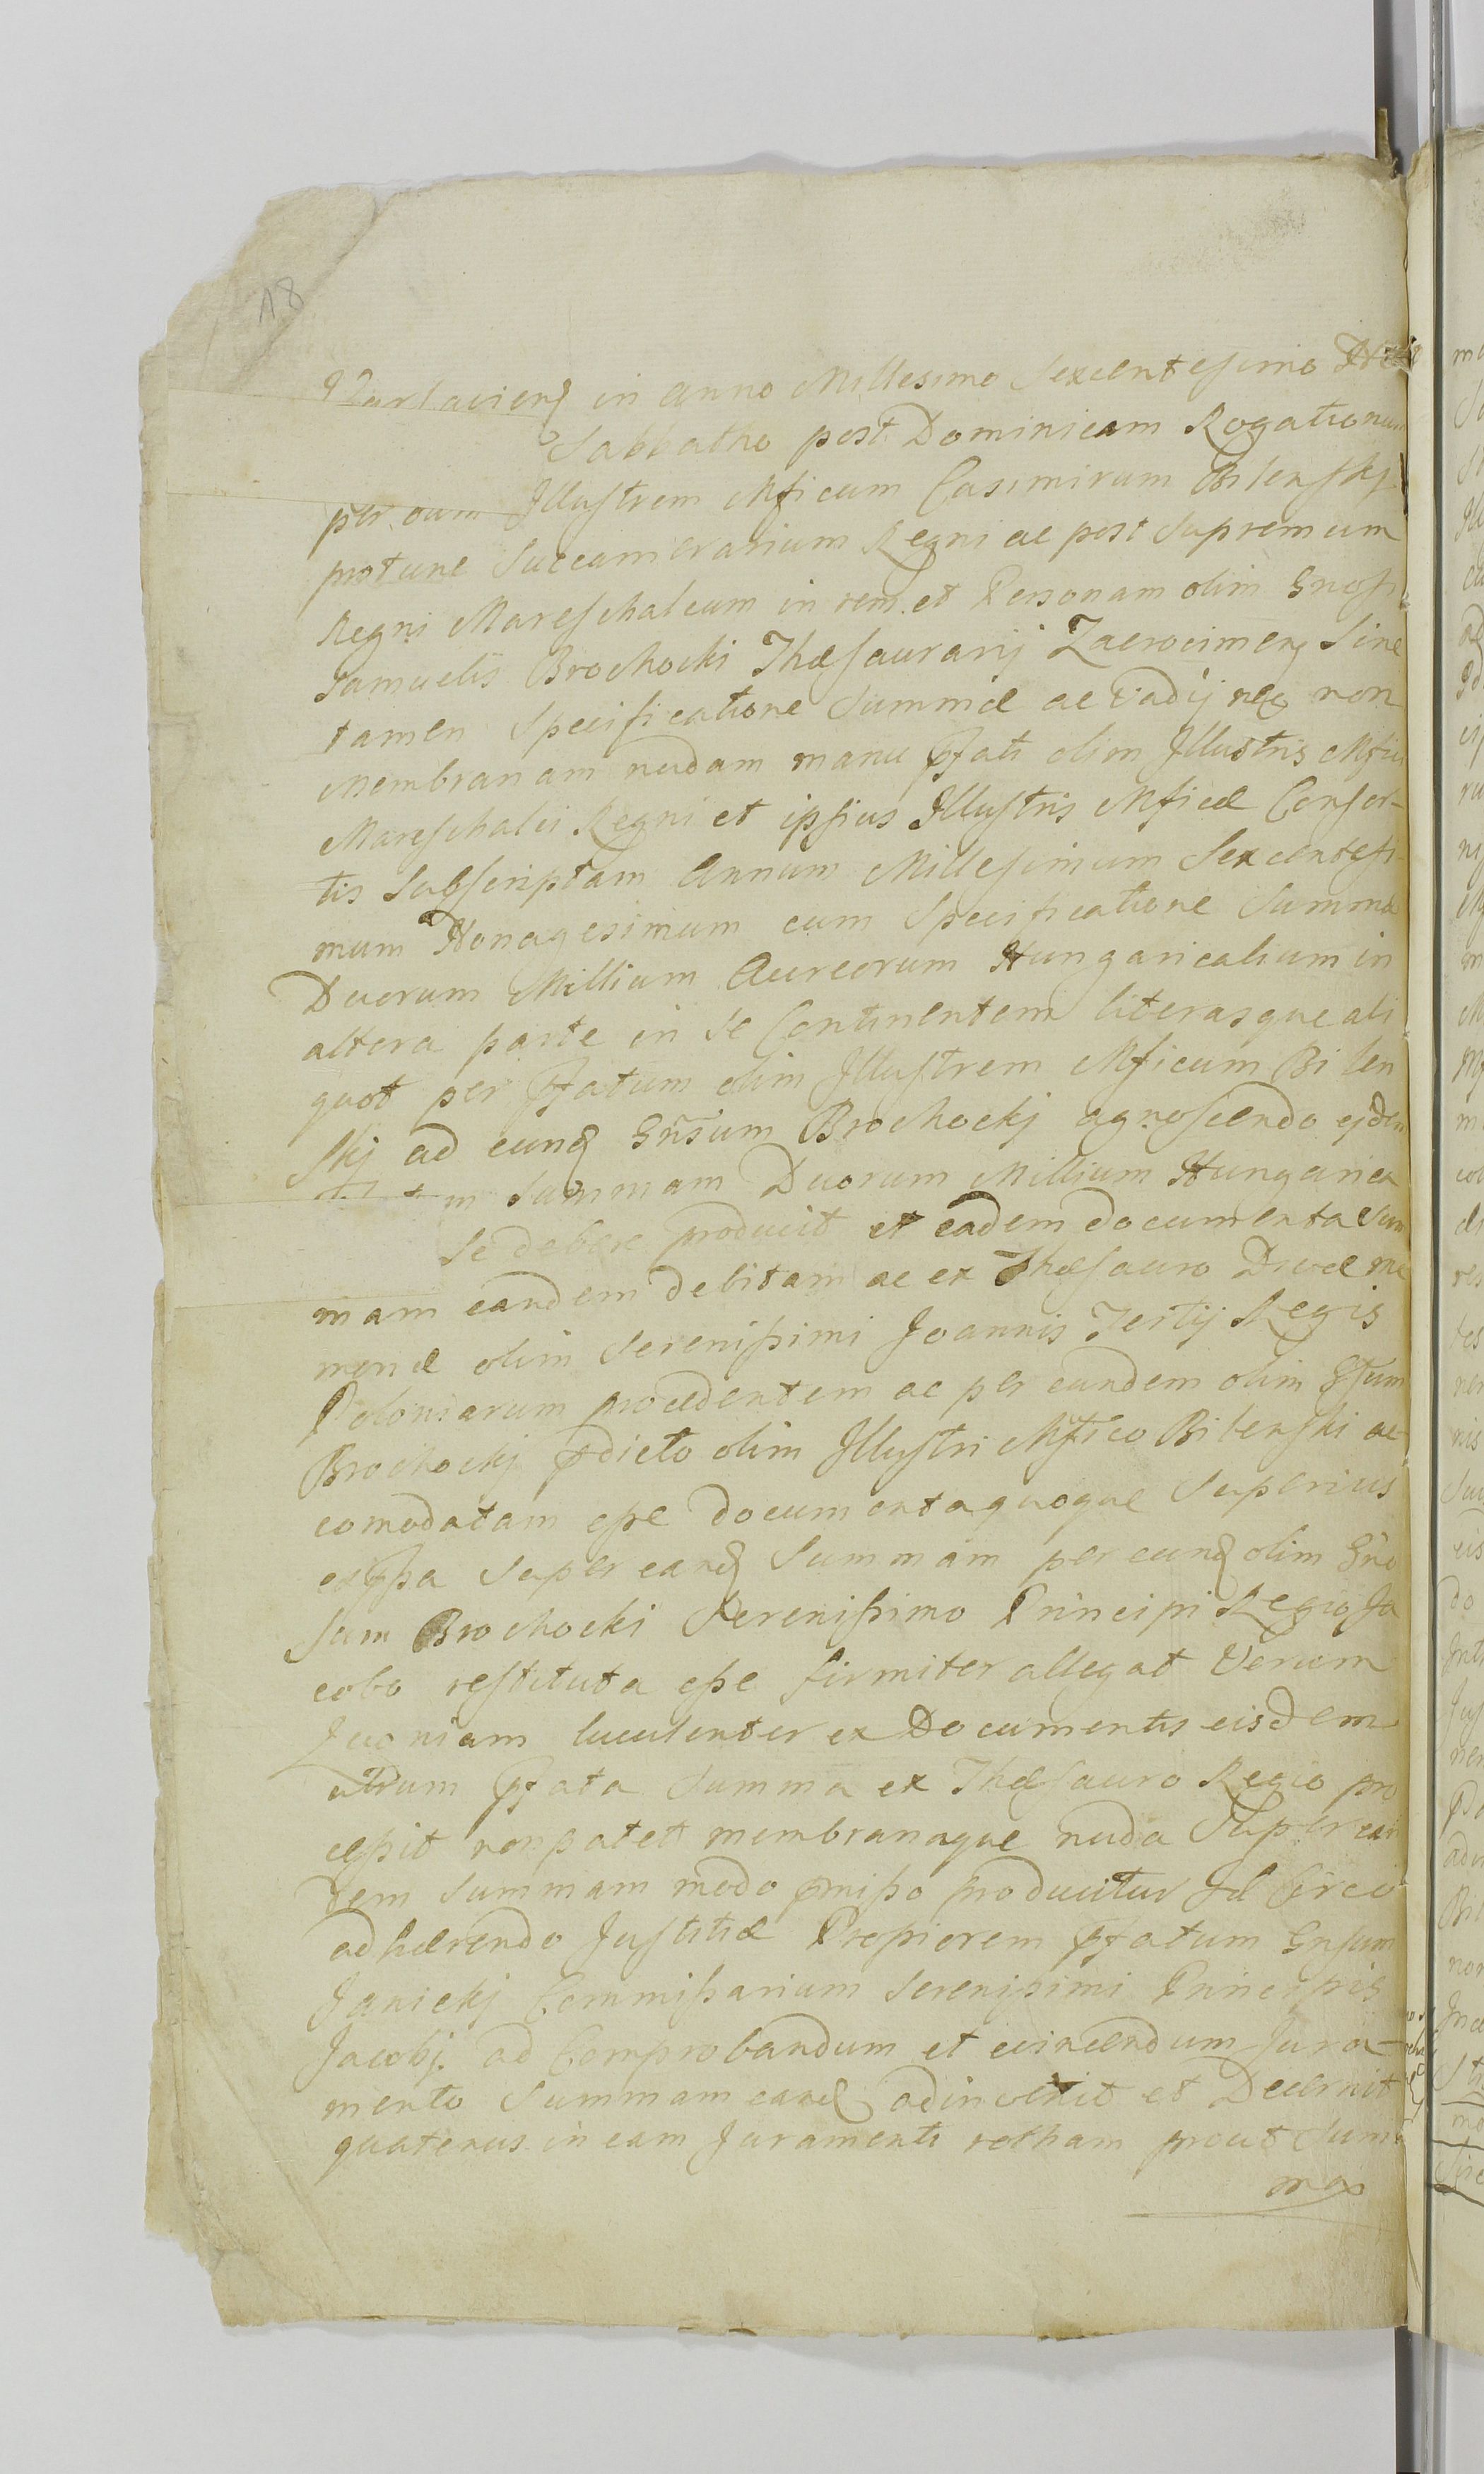 18
in Anno Millesimo Sexcentesimo
Sabbatho post Dominicam Rogationum
per Illustrem Mficum Casimirum Bilenskj
protunc Succamerarium Regni ac post Supremum
Regni Mareschalcum in rem et Personam olim Gnosi
Samuelis Brochocki Thesaurarij Zacrocimens Sine
tamen Specificatione Summæ ac Vadij nec non
Membranam nudam manu Pfati olim Illustris Mfici
Mareschalci Regni et ipsius Illustris Mficæ Consor-
tis Subscriptam Annum Millesimum Sexcentesi-
mum Nonagesimum cum Specificatione Summæ
Duorum Millium Aureorum Hungaricalium in
altera parte in se Continentem literasque ali
quot per Pfatum olim Illustrem Mficum Bilen
skj ad eund Gnsum Brochockj agnoscendo ejdem
in Summam Duorum Millium Hungarica
se debere producit et eadem documenta Sum
mam eandem debitam ac ex Thesauro Divæ me
moriæ olim Serenissimi Joannis Tertij Regis
Poloniarum procedentem ac per eundem olim Gsum
Brochockj pdicto olim Illustri Mfico Bilenski ac-
comodatam esse documentaquoque Superius
expssa Super eand Summam per eund olim Gno
sum Brochocki Serenissimo Principi Regio Ja
cobo restituta esse firmiter allegat Verum
Quoniam luculenter ex Documentis eisdem
utrum Pfata Summa ex Thesauro Regio pro
cessit non patet membranaque nuda Super ean
dem Summam modo pmisso producitur Id Circo
adhærendo Justitiæ Propiorem Pfatum Gnsum
Janickj Commissarium Serenissimi Principis
Jacobj ad Comprobandum et evincendum Jura-
mento Summam eand adinvenit et Decernit
quatenus in eam Juramenti rotham prout Sum
ma